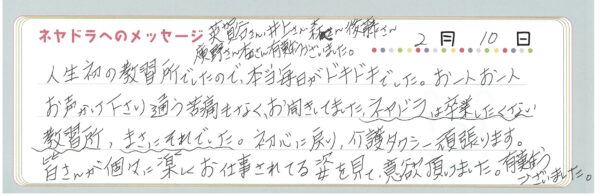 ネヤドラへのメッセージ
英賀谷さん、井上さん、森さん、後藤さん
原野さん、本当に有難うございました。
2月10日
人生初の教習所でしたので、本当毎日がドキドキでした。おートおート
お声がけ下さり通う苦痛もなく、お聞きしてました、ネヤドラは卒業したくない
教習所、まさにそれでした。初心に戻り、介護タクシー頑張ります。
皆さんが個々に楽しくお仕事されてる姿を見て、意欲頂けました。有難う
ございました。